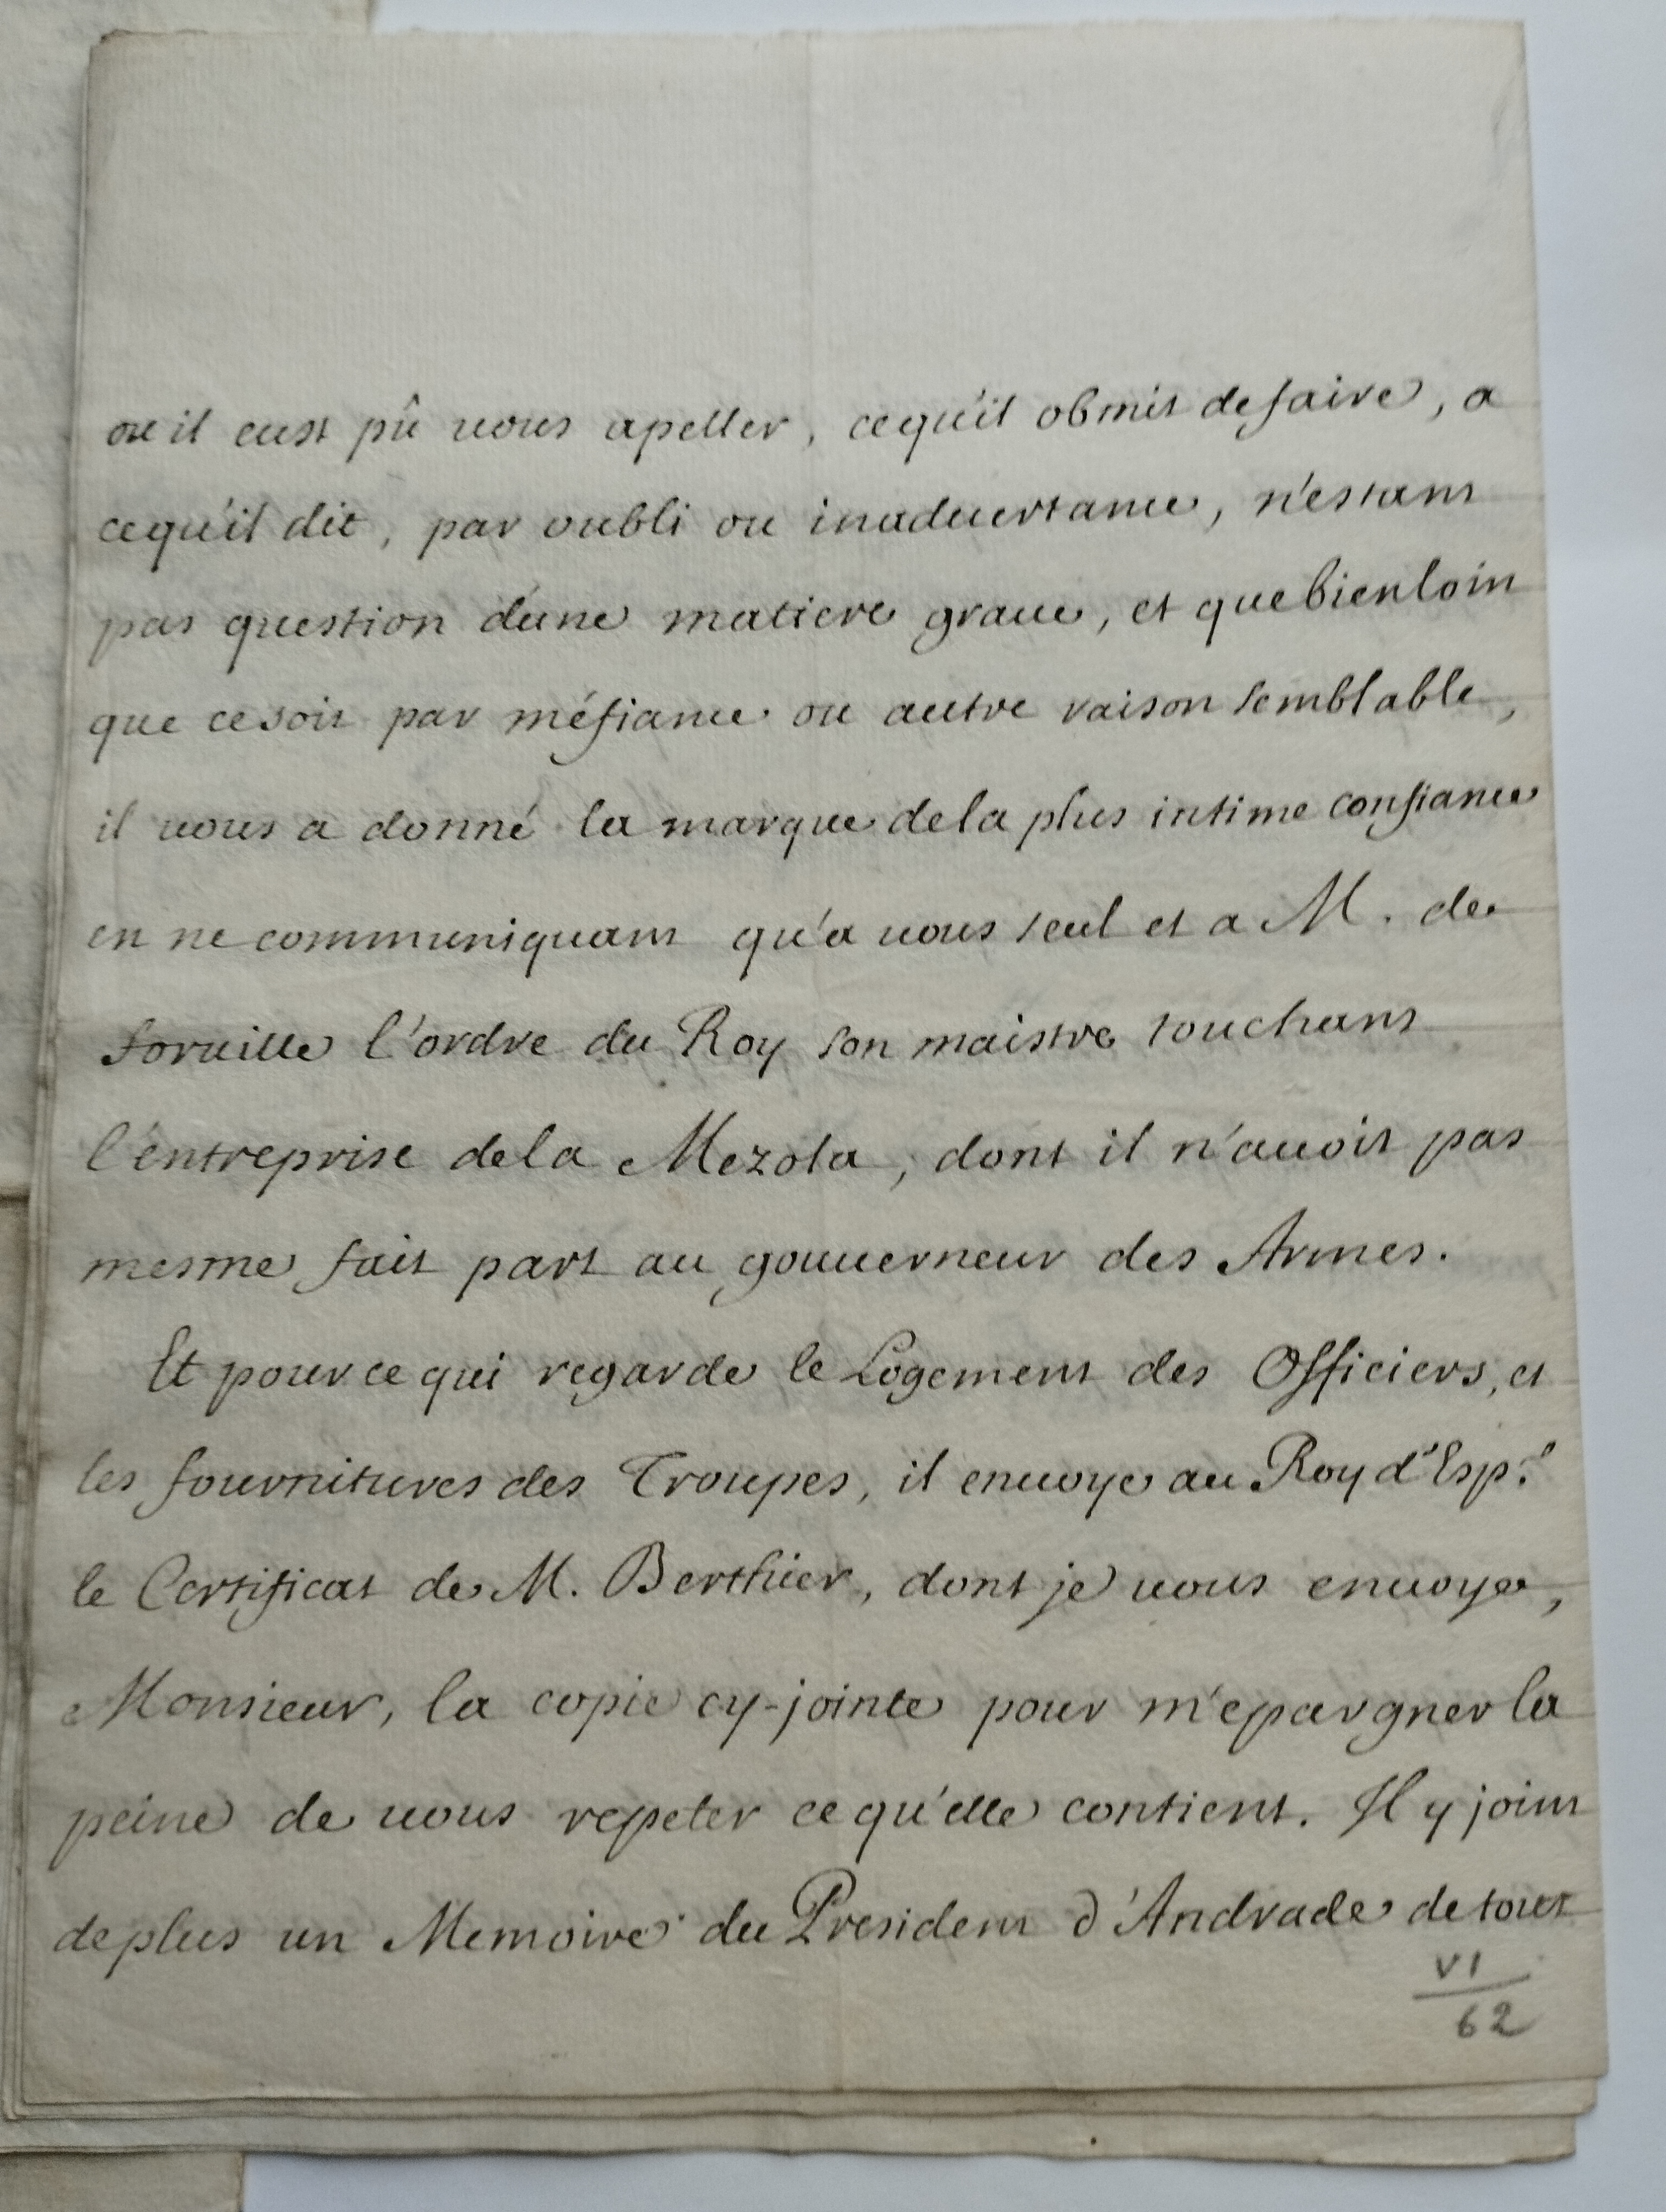 ou il eust pû vous apeller, cequ'il obmit defaire, a
cequ'il dit, par oubli ou inaduertance, n'estant
pas question d'une matiere graue, et quebienloin
que cesoit par méfiance ou autre raison semblable,
il vous a donné la marque dela plus intime confiance
en ne communiquant qu'a vous seul et a M. de
Foruille l'ordre du Roy son maistre touchant
l'entreprise dela Mezola, dont il n'auoit pas
mesme fait part au gouuerneur des Armes.
Et pour ce qui regarde le Logement des Officiers, et
les fournitures des Troupes, il enuoye au Roy d'Esp.e
le Certificat de M. Berthier, dont je vous enuoye,
Monsieur, la copie cy-jointe pour m'epargner la
peine de vous repeter ce qu'elle contient. Il y joint
deplus un Memoire du President d'Andrade de tout
VI
62